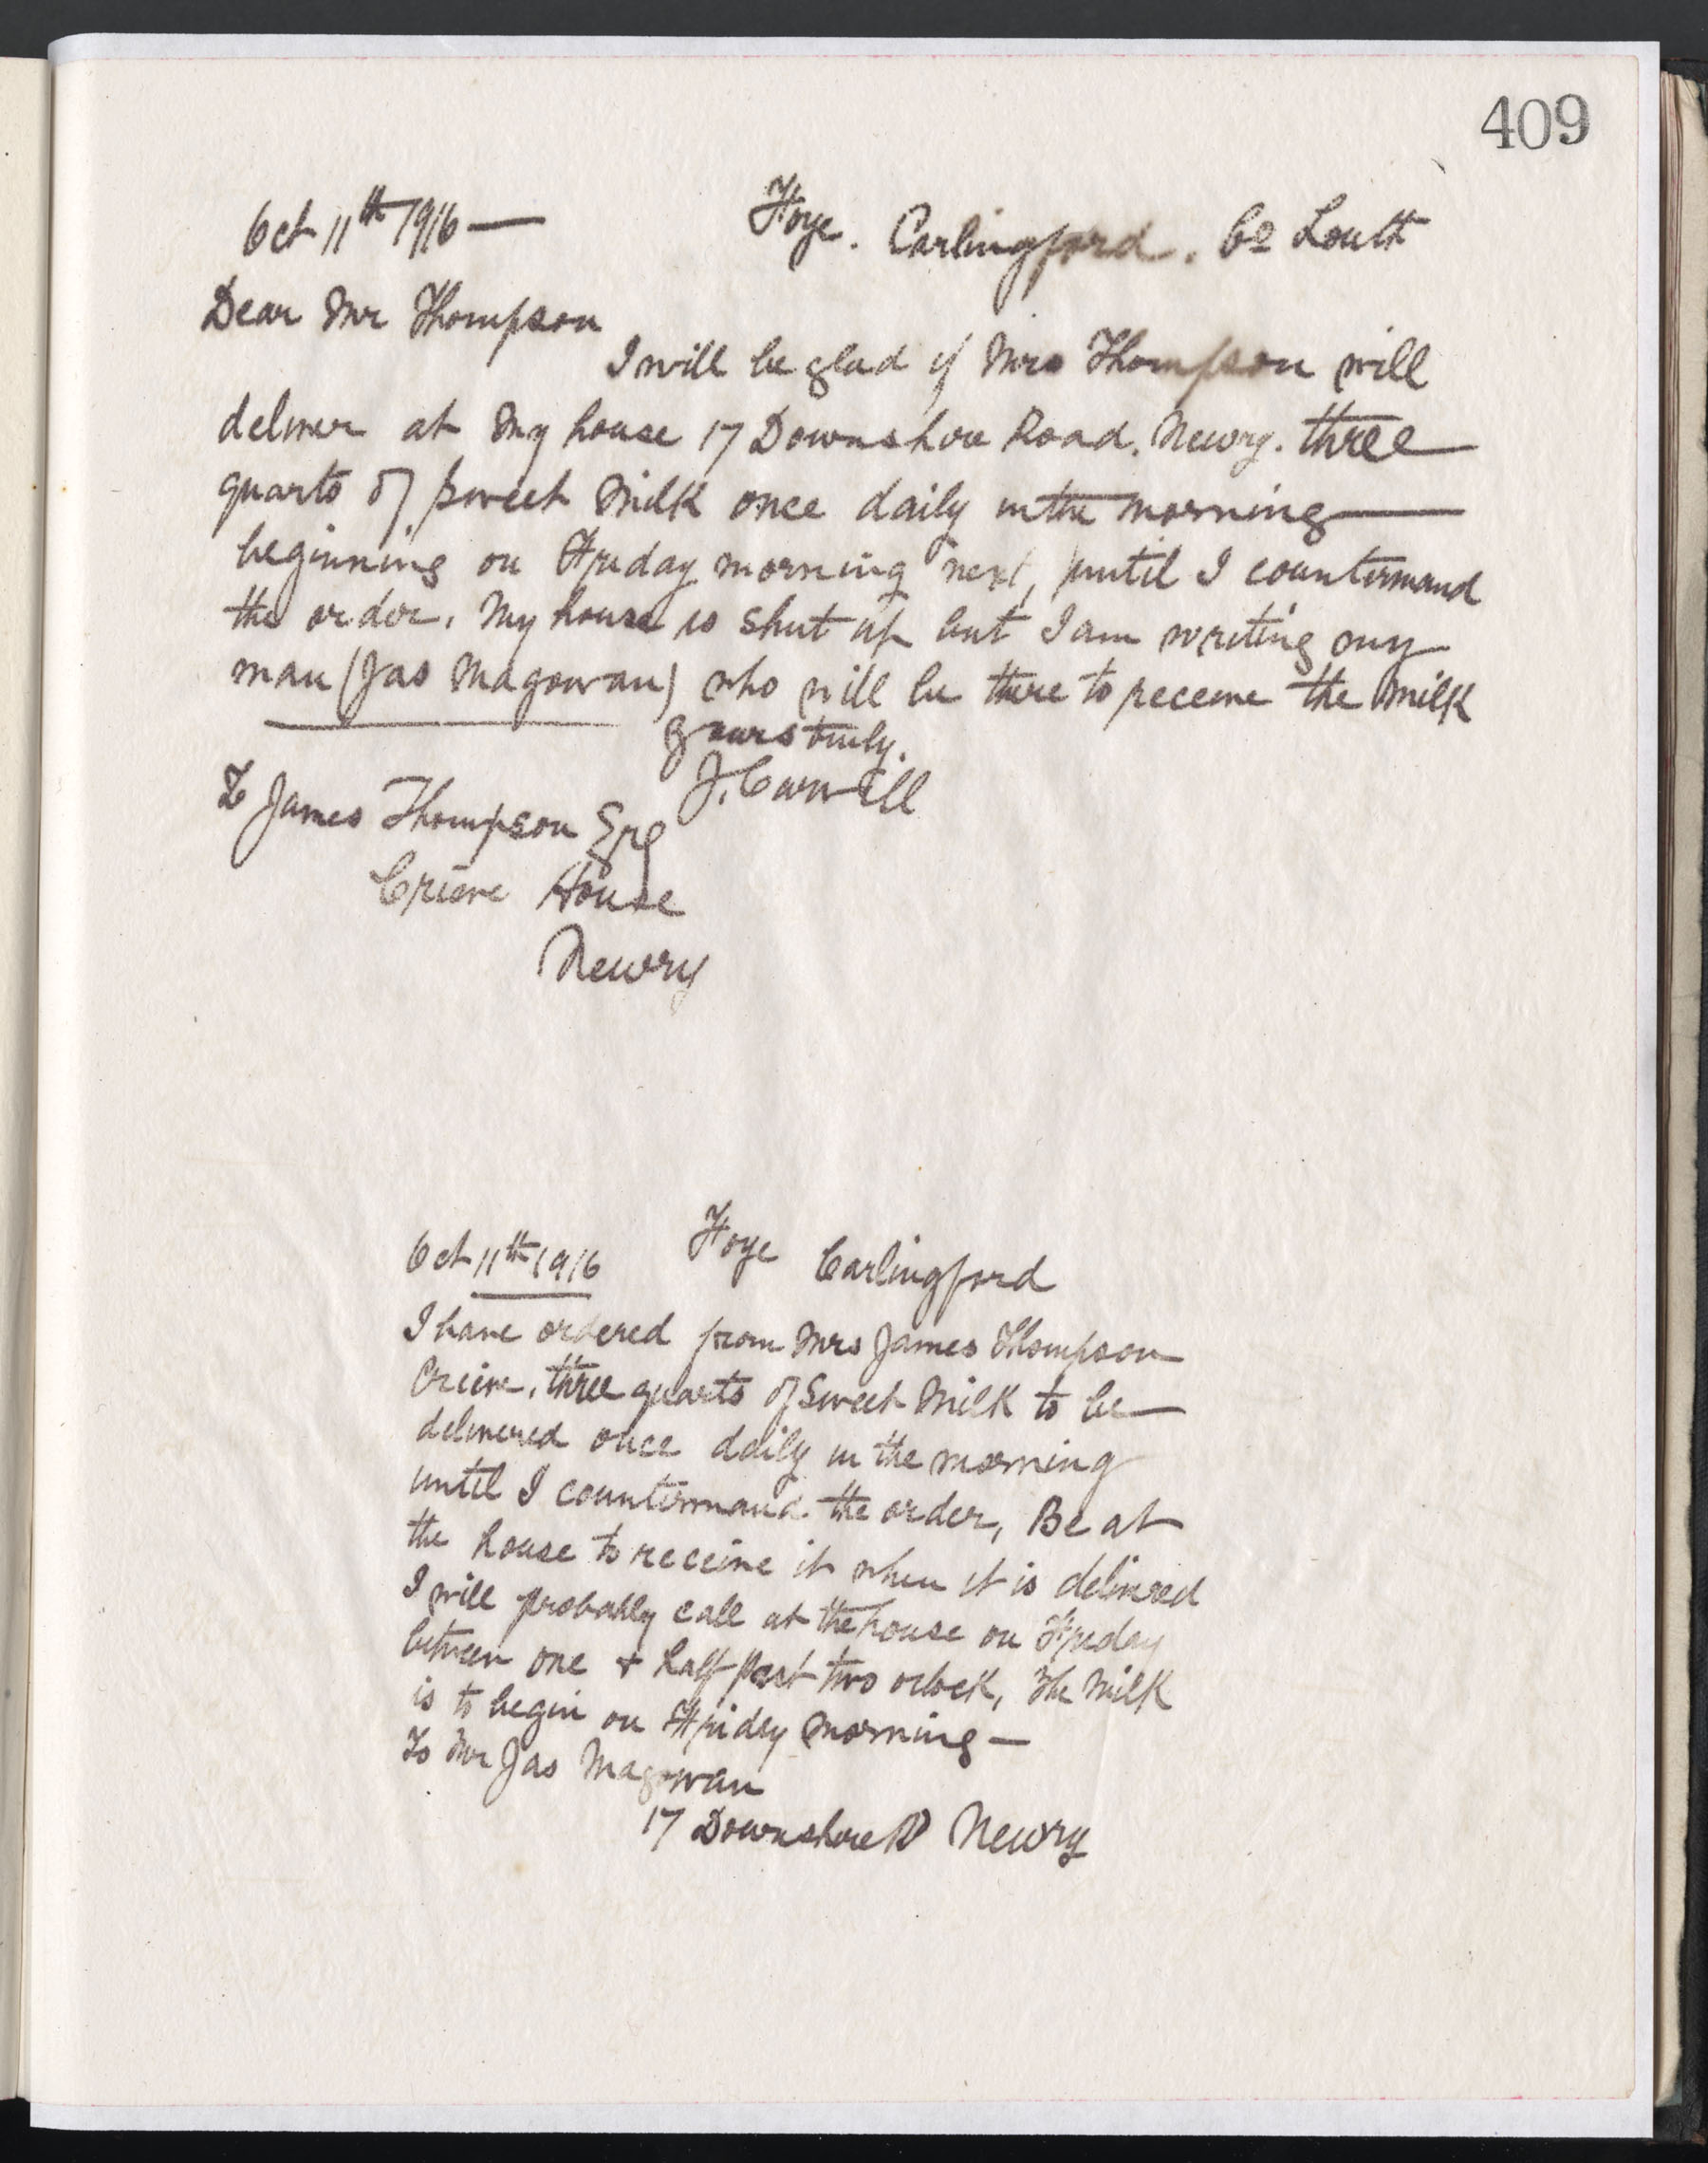 409
Oct 11th 1916 — Foye. Carlingford. Co Louth
Dear Mr Thompson
I will be glad if Mrs Thompson will
deliver at my house 17 Downshire Road. Newry. three
quarts of sweet milk once daily in the morning —
beginning on Friday morning next, until I countermand
the order. My house is shut up but I am writing my
man (Jas Magowan) who will be there to receive the milk
yours truly.
J. Carvill
To James Thompson Esq
Crieve House
Newry
Oct 11th 1916 Foye Carlingford
I have ordered from Mrs James Thompson
Crieve, three quarts of Sweet Milk to be —
delivered once daily in the morning
until I countermand the order, Be at
the house to receive it when it is delivered
I will probably call at the house on Friday
between one + half past two oclock, The Milk
is to begin on Friday morning —
To Mr Jas Magowan
17 Downshire Rd Newry